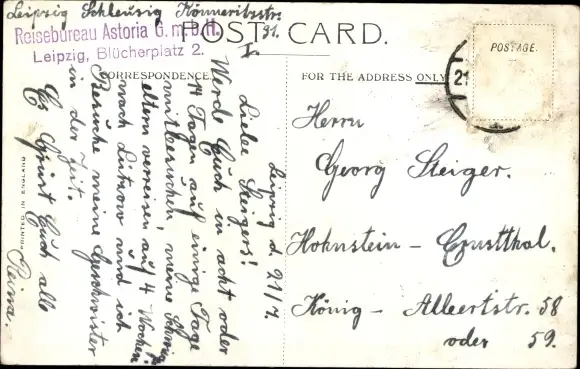 Leipzig Schleusig Könneritzstr.
91. I
Reisebüreau Astoria G.m.b.H.
Leipzig, Blücherplatz 2.
POST CARD.
CORRESPONDENCE
FOR THE ADDRESS ONLY
POSTAGE.
21
PRINTED IN ENGLAND
Leipzig d. 21/7.
Liebe Steigers!
Werde Euch in acht oder
14 Tagen auf einige Tage
mitbesuchen, meine Schwie
eltern verreisen auf 4 Wochen
nach Lützow und ich
Besuche meine Geschwister
in der Zeit.
Es Grüst Euch alle
Herrn
Georg Steiger.
Hohnstein - Ernstthal.
König - Albertstr. 58
oder 59.